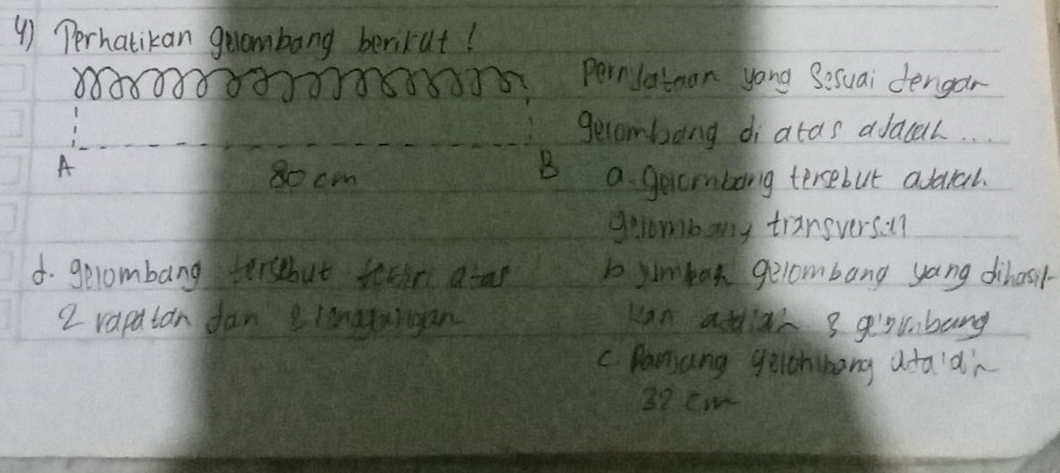 4) Perhatikan gelombang berikut!
Pernyataan yang sesuai dengan
gelombang di atas adalah...
A 80 cm B
a. gelombang tersebut adalah
gelombang transversal
b jumlah gelombang yang dihasil-
kan adalah 3 gelombang
c Panjang gelombang adalah
32 cm
d. gelombang tersebut terdiri atas
2 rapatan dan renggangan